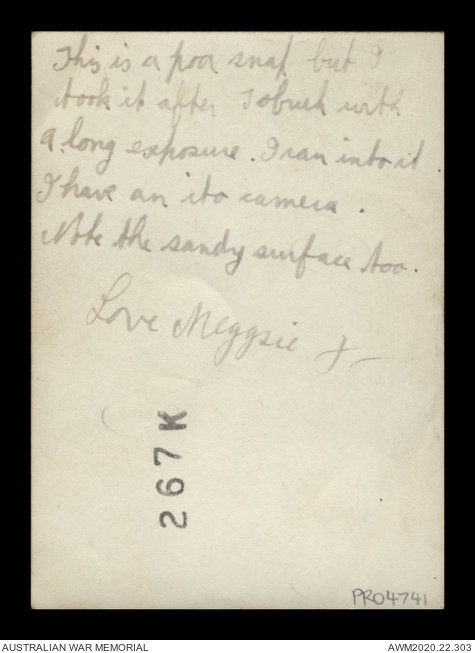 This is a poor snap but I
took it after Tobruk with
a long exposure. I ran into it.
I have an ito camera.
Note the sandy surface too.
Love Meggsie x
267K
PRO4741
AUSTRALIAN WAR MEMORIAL
AWM2020.22.303